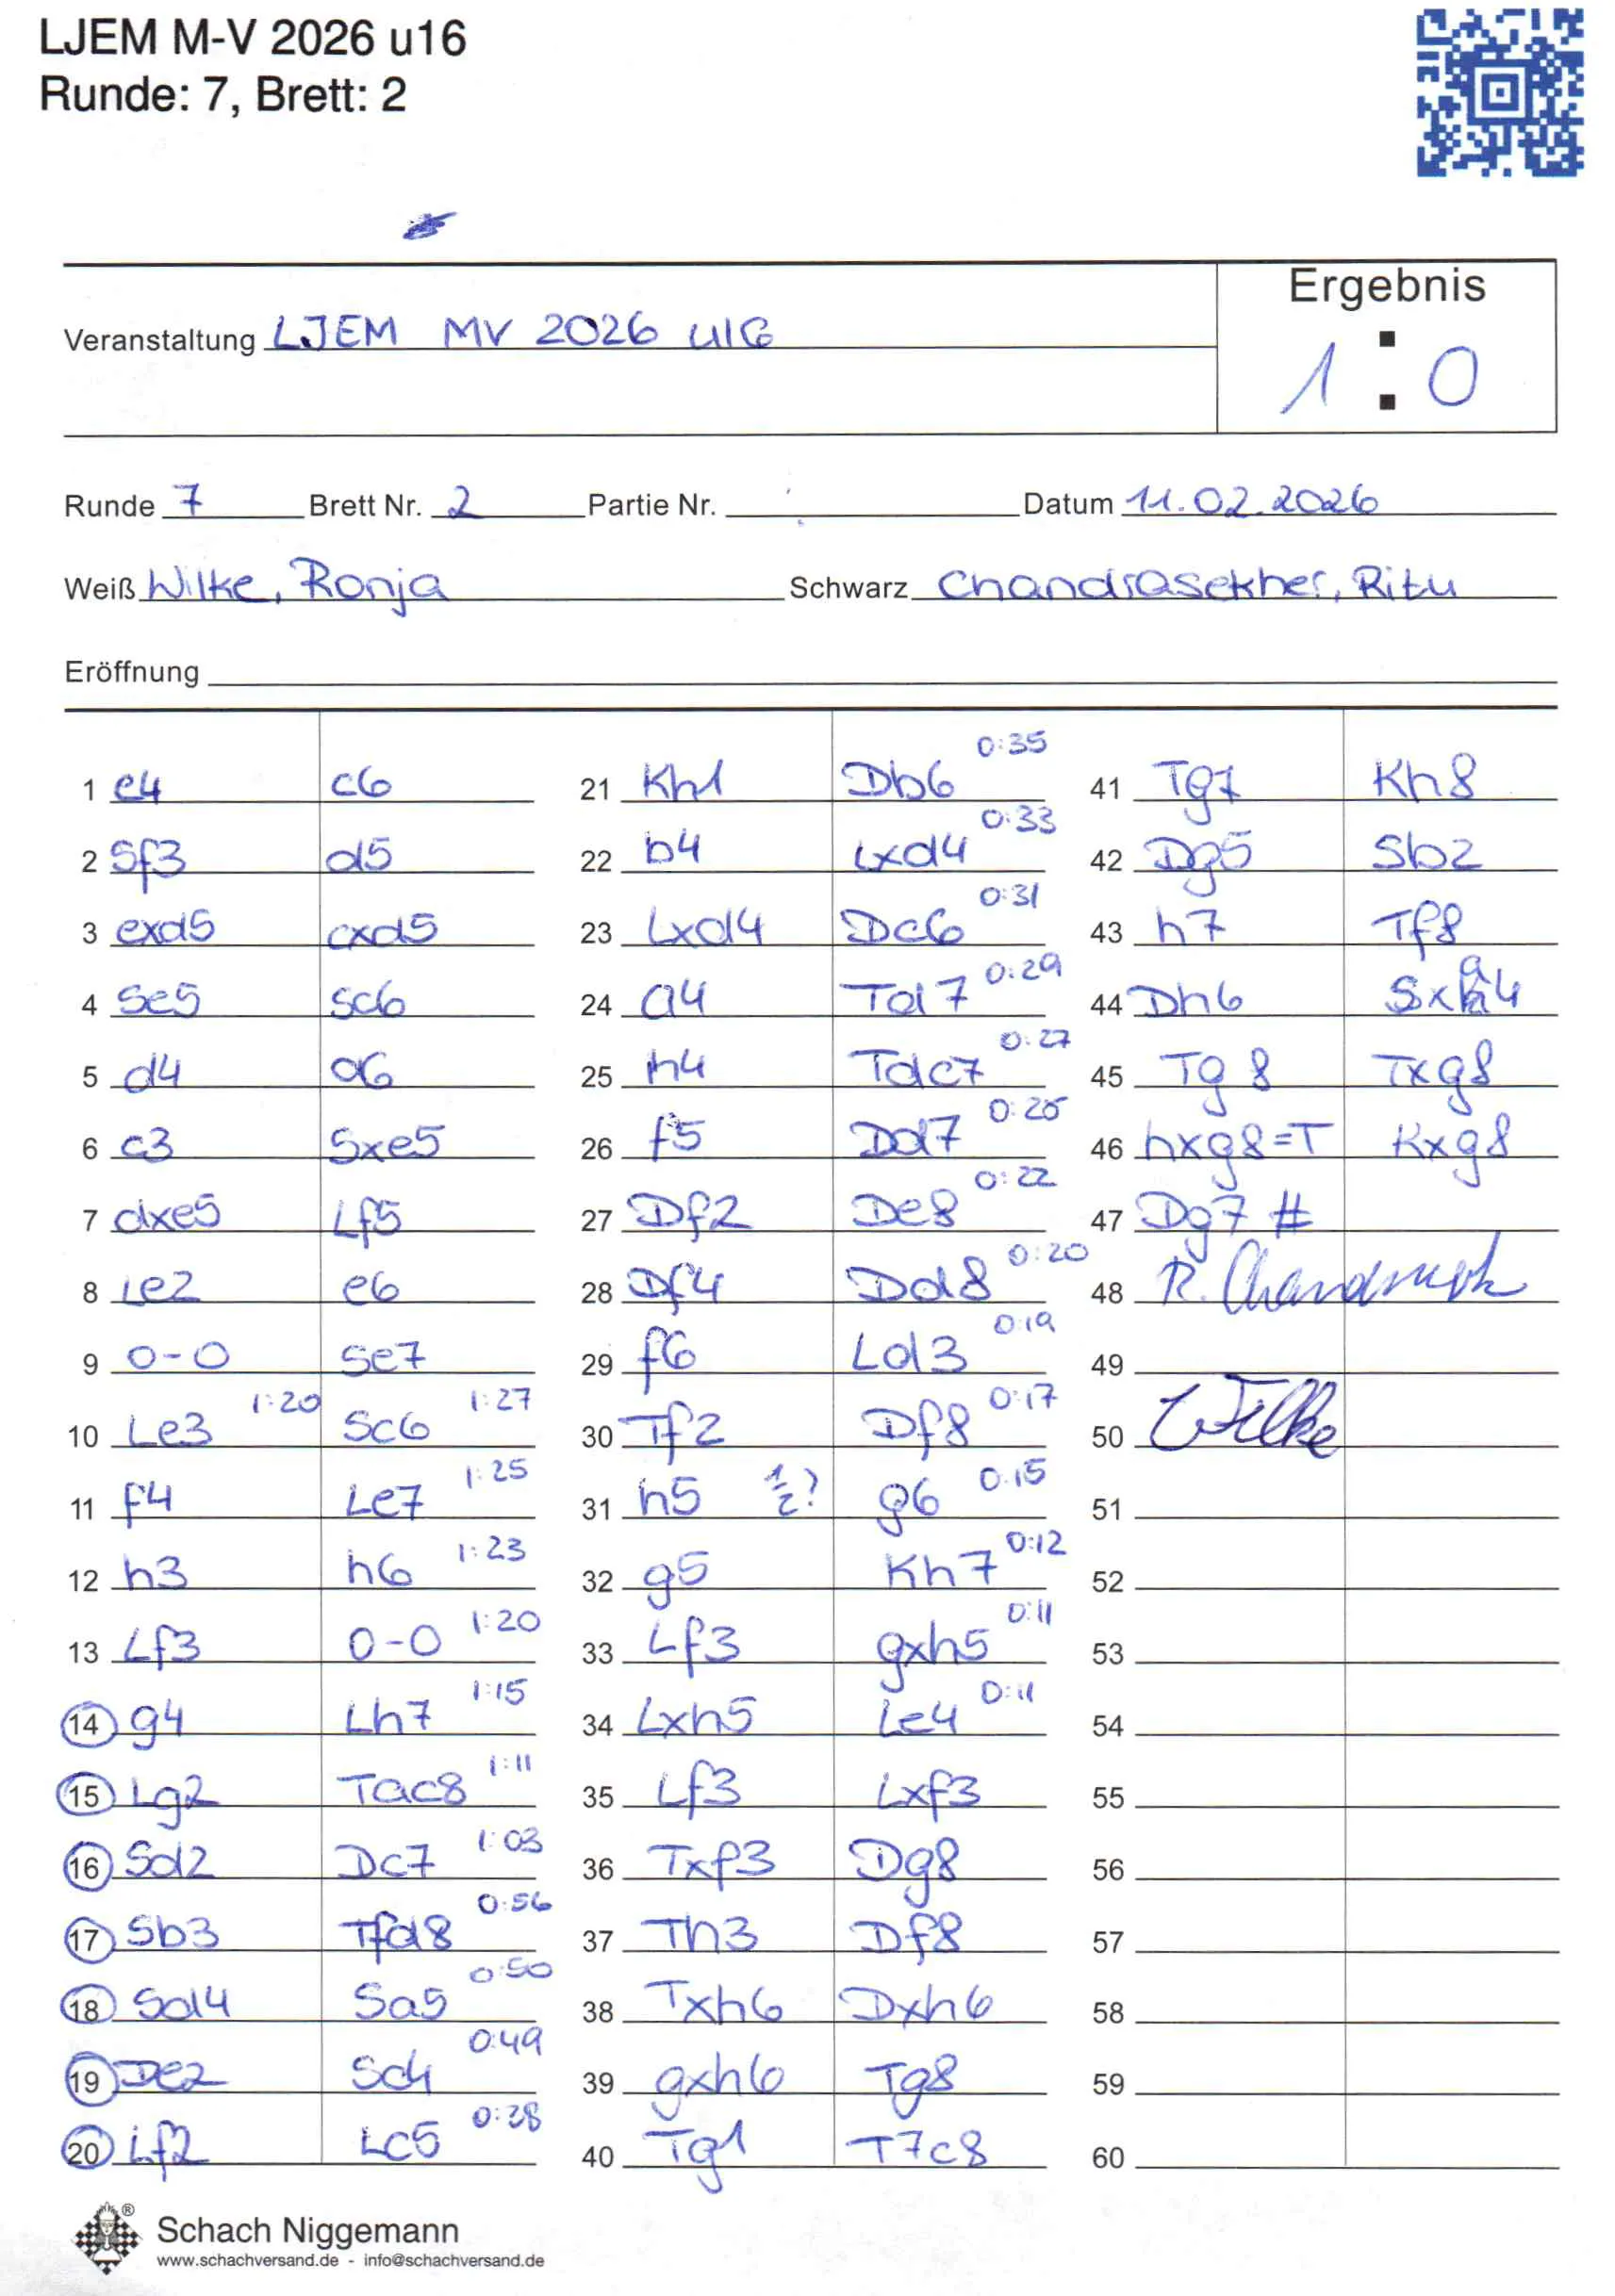 LJEM M-V 2026 u16
Runde: 7, Brett: 2
Ergebnis
Veranstaltung LJEM MV 2026 U16
1 : 0
Runde 7 Brett Nr. 2 Partie Nr. Datum 11.02.2026
Weiß Wilke, Ronja Schwarz Chandrasekher, Ritu
Eröffnung
1 e4 c6
2 Sf3 d5
3 exd5 cxd5
4 Se5 Sc6
5 d4 a6
6 c3 Sxe5
7 dxe5 Lf5
8 Le2 e6
9 0-0 Se7
10 Le3 1:20 Sc6 1:27
11 f4 Le7 1:25
12 h3 h6 1:23
13 Lf3 0-0 1:20
14 g4 Lh7 1:15
15 Lg2 Tac8 1:11
16 Sd2 Dc7 1:03
17 Sb3 Tfd8 0:56
18 Sd4 Sa5 0:50
19 De2 Sc4 0:49
20 Lf2 Lc5 0:38
21 Kh1 Db6 0:35
22 b4 Lxd4 0:33
23 Lxd4 Dc6 0:31
24 a4 Td7 0:29
25 h4 Tdc7 0:27
26 f5 Dd7 0:25
27 Df2 De8 0:22
28 Df4 Dd8 0:20
29 f6 Ld3 0:19
30 Tf2 Df8 0:17
31 h5 1/2? g6 0:15
32 g5 Kh7 0:12
33 Lf3 gxh5 0:11
34 Lxh5 Le4 0:11
35 Lf3 Lxf3
36 Txf3 Dg8
37 Th3 Df8
38 Txh6 Dxh6
39 gxh6 Tg8
40 Tg1 T7c8
41 Tg7 Kh8
42 Dg5 Sb2
43 h7 Tf8
44 Dh6 Sxa4
45 Tg8 Txg8
46 hxg8=T Kxg8
47 Dg7 #
48 R.
49
50 Wilke
51
52
53
54
55
56
57
58
59
60
Schach Niggemann
www.schachversand.de - info@schachversand.de